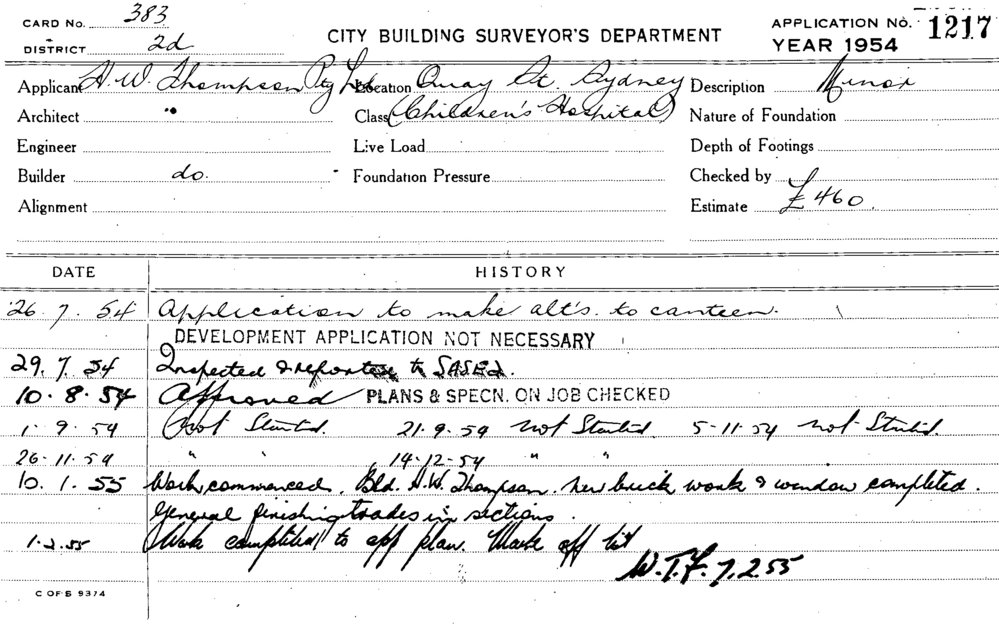 CARD NO. 383
DISTRICT 2d
CITY BUILDING SURVEYOR'S DEPARTMENT
APPLICATION NO. 1217
YEAR 1954
Applicant H. W. Thompson Pty Ltd Location Quay St. Sydney Description Minor
Architect " Class (Children's Hospital) Nature of Foundation
Engineer Live Load Depth of Footings
Builder do. Foundation Pressure Checked by
Alignment Estimate £460.
DATE HISTORY
26. 7. 54 Application to make alt's. to canteen.
DEVELOPMENT APPLICATION NOT NECESSARY
29. 7. 54 Inspected & reported to
10. 8. 54 Approved PLANS & SPECN. ON JOB CHECKED
1. 9. 54 Not Started. 21. 9. 54 Not Started. 5-11-54 Not Started.
26. 11. 54 " " 14-12-54 " "
10. 1. 55 Work commenced. Bld. H.W. Thompson. New brick work & window completed.
General finishing trades in sections.
1.2.55 Work completed to app plan. Mark off
W.T.F. 7.2.55
C OF S 9374